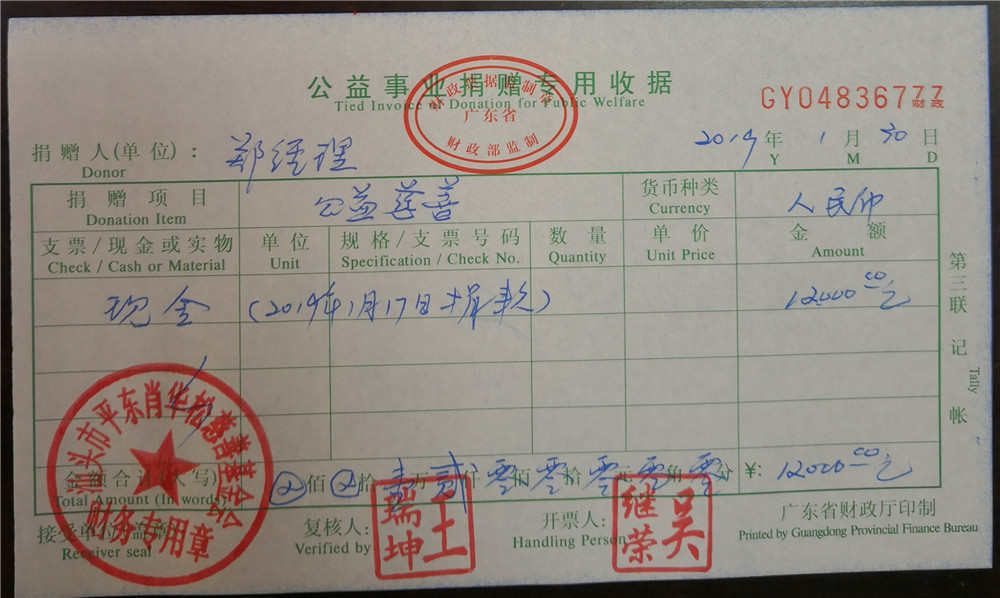 公益事业捐赠专用收据
Tied Invoice of Donation for Public Welfare
广东省
财政部监制
GY04836777
财政
捐赠人(单位): 郑经理
Donor
2019年1月30日
Y M D
捐赠项目 公益慈善 货币种类 人民币
Donation Item Currency
支票/现金或实物 单位 规格/支票号码 数量 单价 金额
Check / Cash or Material Unit Specification / Check No. Quantity Unit Price Amount
现金 (2019年1月17日捐款) 12000.00元
金额合计(大写) 佰 拾 壹万贰仟零佰零拾零元零角零分 ¥: 12000.00元
Total Amount (In words)
接受单位(盖章)
Receiver seal
复核人:
Verified by
王瑞坤
开票人:
Handling Person
吴继荣
广东省财政厅印制
Printed by Guangdong Provincial Finance Bureau
第三联 记帐
Tally
汕头市平东肖华松慈善基金会
财务专用章